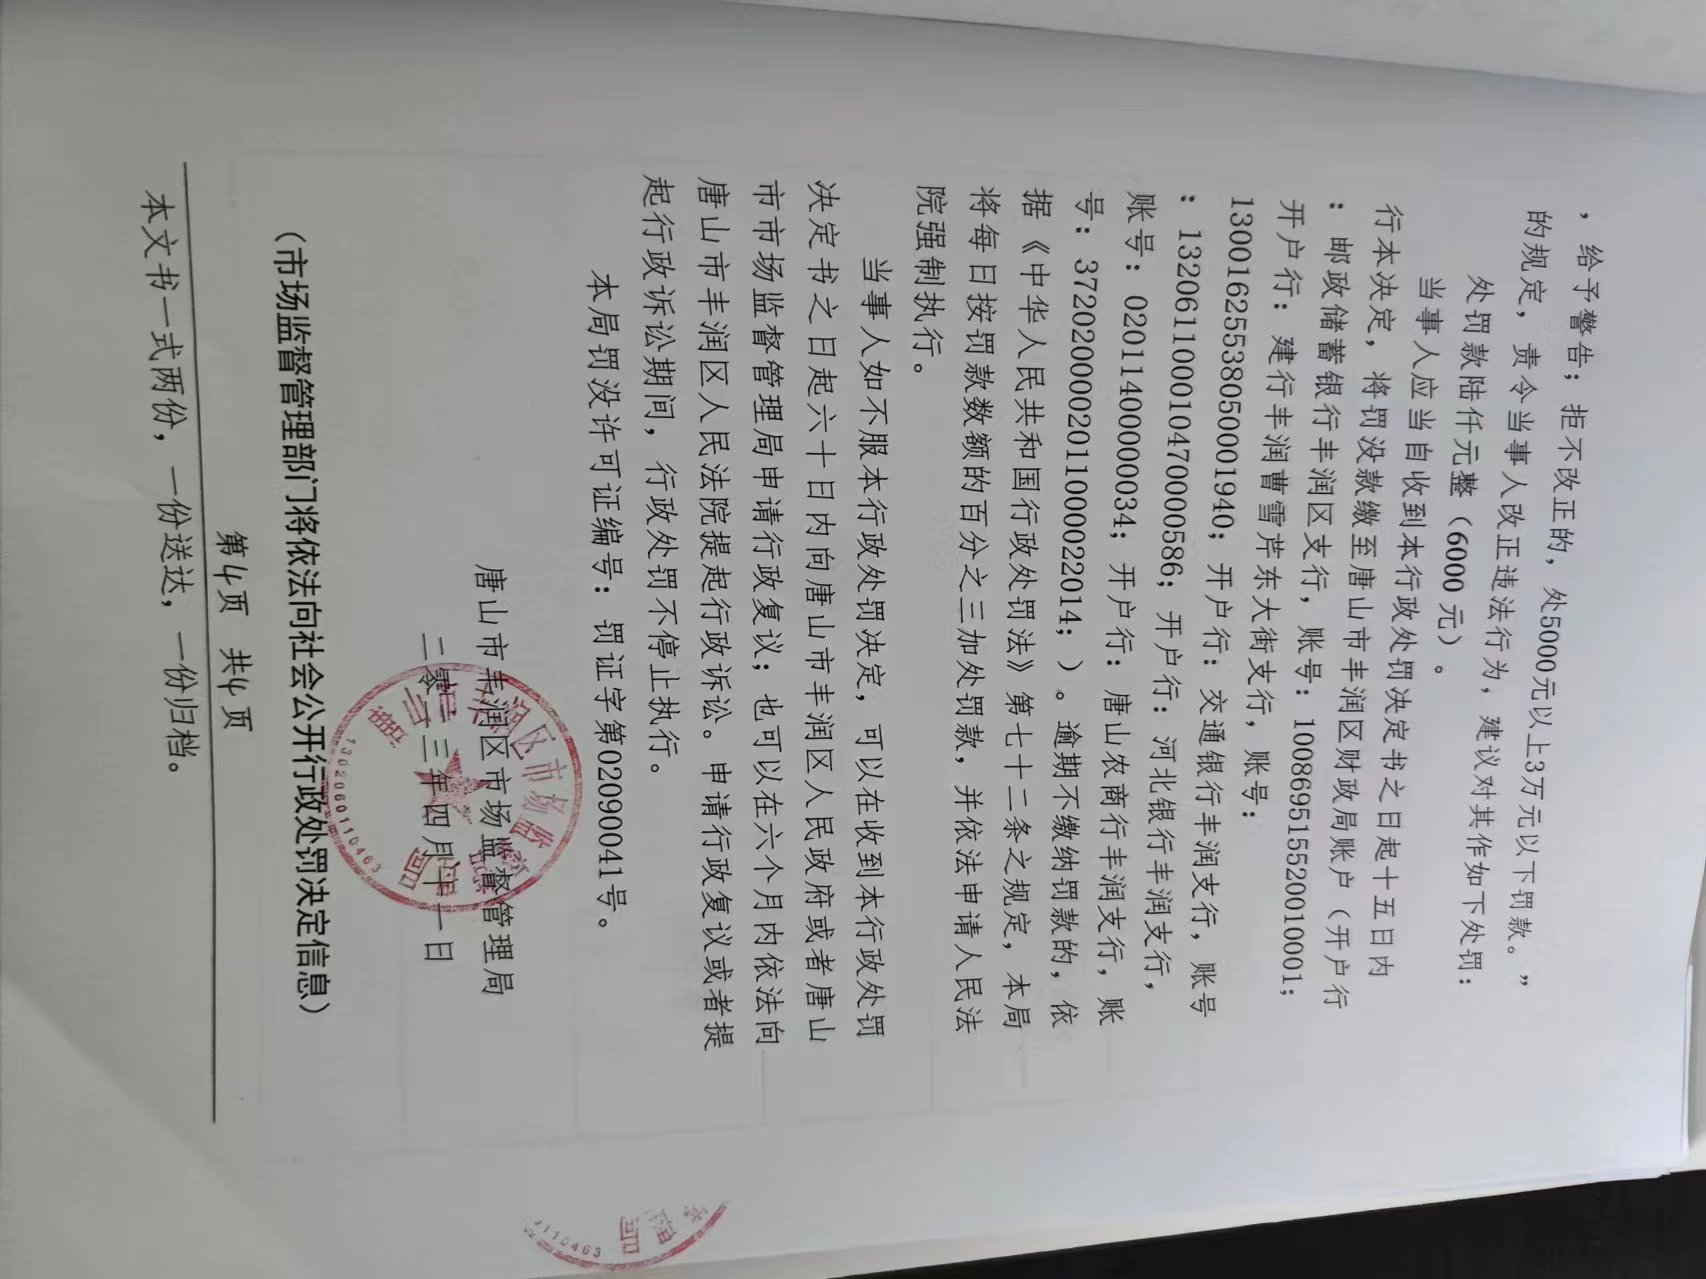 ，给予警告；拒不改正的，处5000元以上3万元以下罚款。”
的规定，责令当事人改正违法行为，建议对其作如下处罚：
处罚款陆仟元整（6000 元）。
当事人应当自收到本行政处罚决定书之日起十五日内
行本决定，将罚没款缴至唐山市丰润区财政局账户（开户行
：邮政储蓄银行丰润区支行，账号：100869515520010001；
开户行：建行丰润曹雪芹东大街支行，账号：
13001625538050001940；开户行：交通银行丰润支行，账号
：132061100010470000586；开户行：河北银行丰润支行，
账号：02011400000034；开户行：唐山农商行丰润支行，账
号：372020000201100022014；）。逾期不缴纳罚款的，依
据《中华人民共和国行政处罚法》第七十二条之规定，本局
将每日按罚款数额的百分之三加处罚款，并依法申请人民法
院强制执行。
当事人如不服本行政处罚决定，可以在收到本行政处罚
决定书之日起六十日内向唐山市丰润区人民政府或者唐山
市市场监督管理局申请行政复议；也可以在六个月内依法向
唐山市丰润区人民法院提起行政诉讼。申请行政复议或者提
起行政诉讼期间，行政处罚不停止执行。
本局罚没许可证编号：罚证字第02090041号。
唐山市丰润区市场监督管理局
二零二三年四月十一日
1302060110463
（市场监督管理部门将依法向社会公开行政处罚决定信息）
第4页 共4页
本文书一式两份，一份送达，一份归档。
110463